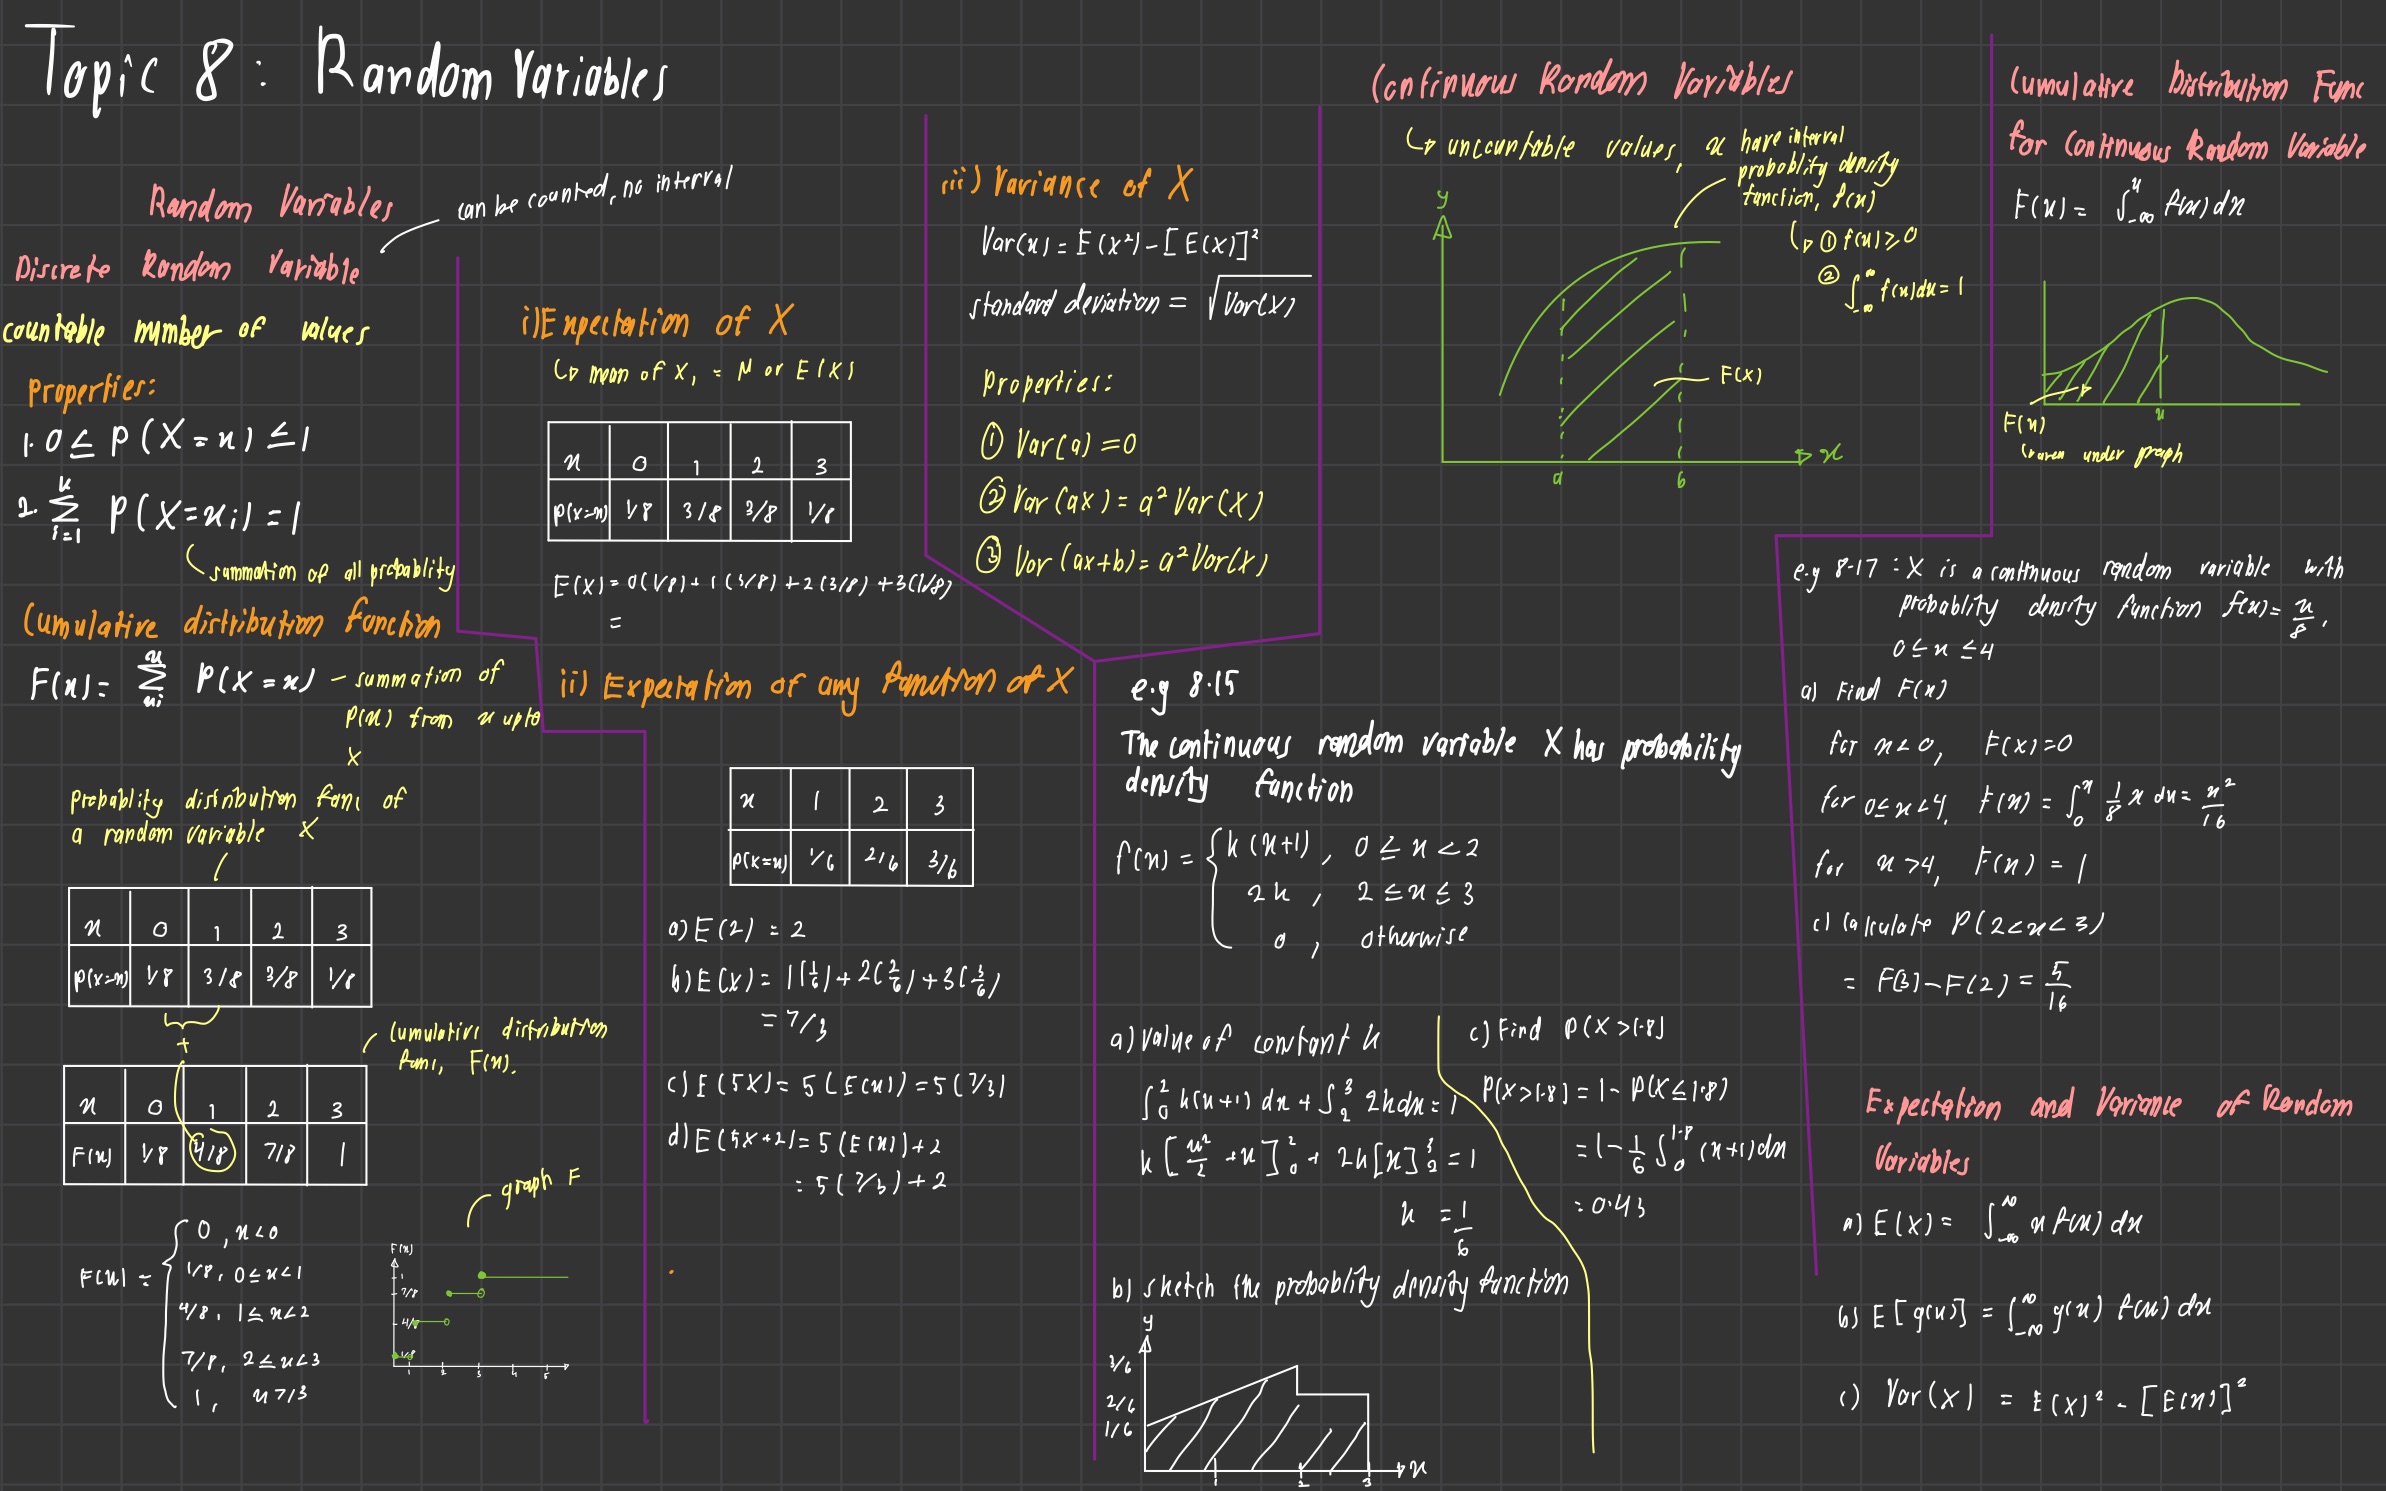 Topic 8: Random Variables
Random Variables
Discrete Random Variable
can be counted, no interval
countable number of values
Properties:
1. 0 ≤ P(X=x) ≤ 1
2. n Σ i=1 P(X=xi) = 1
summation of all probablity
Cumulative distribution function
F(x) = x Σ xi P(X=x) - summation of
P(x) from x upto
X
Probablity distribution func of
a random variable X
x 0 1 2 3
P(X=x) 1/8 3/8 3/8 1/8
+
Cumulative distribution
func, F(x).
x 0 1 2 3
F(x) 1/8 4/8 7/8 1
graph F
F(x) = { 0, x<0
1/8, 0≤x<1
4/8, 1≤x<2
7/8, 2≤x<3
1, x≥3
F(x)
1
7/8
4/8
1/8
1 2 3 4 5
i) Expectation of X
↳ mean of X, = μ or E(X)
x 0 1 2 3
P(X=x) 1/8 3/8 3/8 1/8
E(X) = 0(1/8) + 1(3/8) + 2(3/8) + 3(1/8)
=
ii) Expectation of any function of X
x 1 2 3
P(X=x) 1/6 2/6 3/6
a) E(2) = 2
b) E(X) = 1(1/6) + 2(2/6) + 3(3/6)
= 7/3
c) E(5X) = 5(E(x)) = 5(7/3)
d) E(5X+2) = 5(E(x)) + 2
= 5(7/3) + 2
iii) Variance of X
Var(x) = E(X²) - [E(X)]²
standard deviation = √Var(X)
Properties:
① Var(a) = 0
② Var(ax) = a² Var(X)
③ Var(ax+b) = a² Var(X)
e.g 8.15
The continuous random variable X has probability
density function
f(x) = { k(x+1), 0 ≤ x < 2
2k, 2 ≤ x ≤ 3
0, otherwise
a) value of constant k
∫₀² k(x+1) dx + ∫₂³ 2k dx = 1
k [x²/2 + x]₀² + 2k[x]₂³ = 1
k = 1/6
b) sketch the probablity density function
y
3/6
2/6
1/6
1 2 3 x
c) Find P(X>1.8)
P(X>1.8) = 1 - P(X≤1.8)
= 1 - 1/6 ∫₀^1.8 (x+1) dx
= 0.43
Continuous Random Variables
↳ uncountable values, x have interval
probablity density
function, f(x)
↳ ① f(x) ≥ 0
② ∫_-∞^∞ f(x)dx = 1
y
F(X)
a b x
Cumulative Distribution Func
for Continuous Random Variable
F(x) = ∫_-∞^x f(x) dx
x
F(x)
↳ area under graph
e.g 8.17 : X is a continuous random variable with
probablity density function f(x) = x/8,
0 ≤ x ≤ 4
a) Find F(x)
for x<0, F(x)=0
for 0≤x<4, F(x) = ∫₀^x 1/8 x dx = x²/16
for x>4, F(x) = 1
c) Calculate P(2<x<3)
= F(3) - F(2) = 5/16
Expectation and Variance of Random
Variables
a) E(X) = ∫_-∞^∞ x f(x) dx
b) E[g(x)] = ∫_-∞^∞ g(x) f(x) dx
c) Var(X) = E(X)² - [E(x)]²